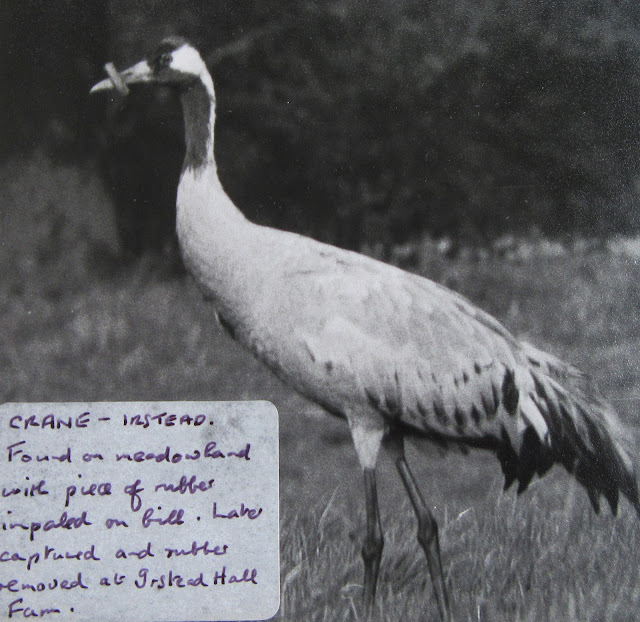 CRANE - IRSTEAD.
Found on meadowland
with piece of rubber
impaled on bill. Later
captured and rubber
removed at Irstead Hall
Farm.